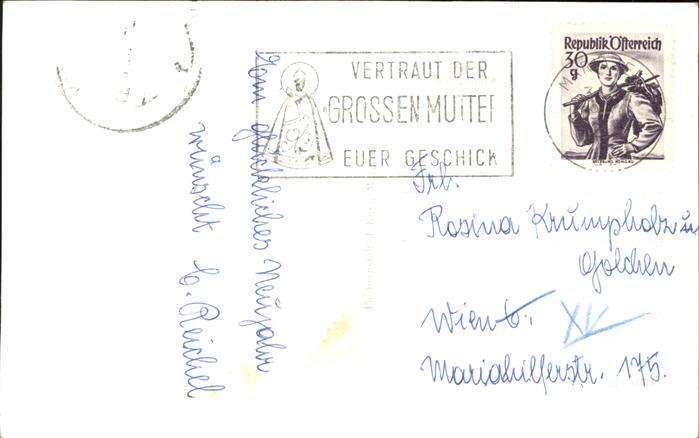 Ein glückliches Neujahr
wünscht C. Reichel
VERTRAUT DER
GROSSEN MUTTER
EUER GESCHICK
Republik Österreich
30
g
Frl.
Rosina Krumpholz u
Goldchen
Wien 6.
XV
Mariahilferstr. 175.